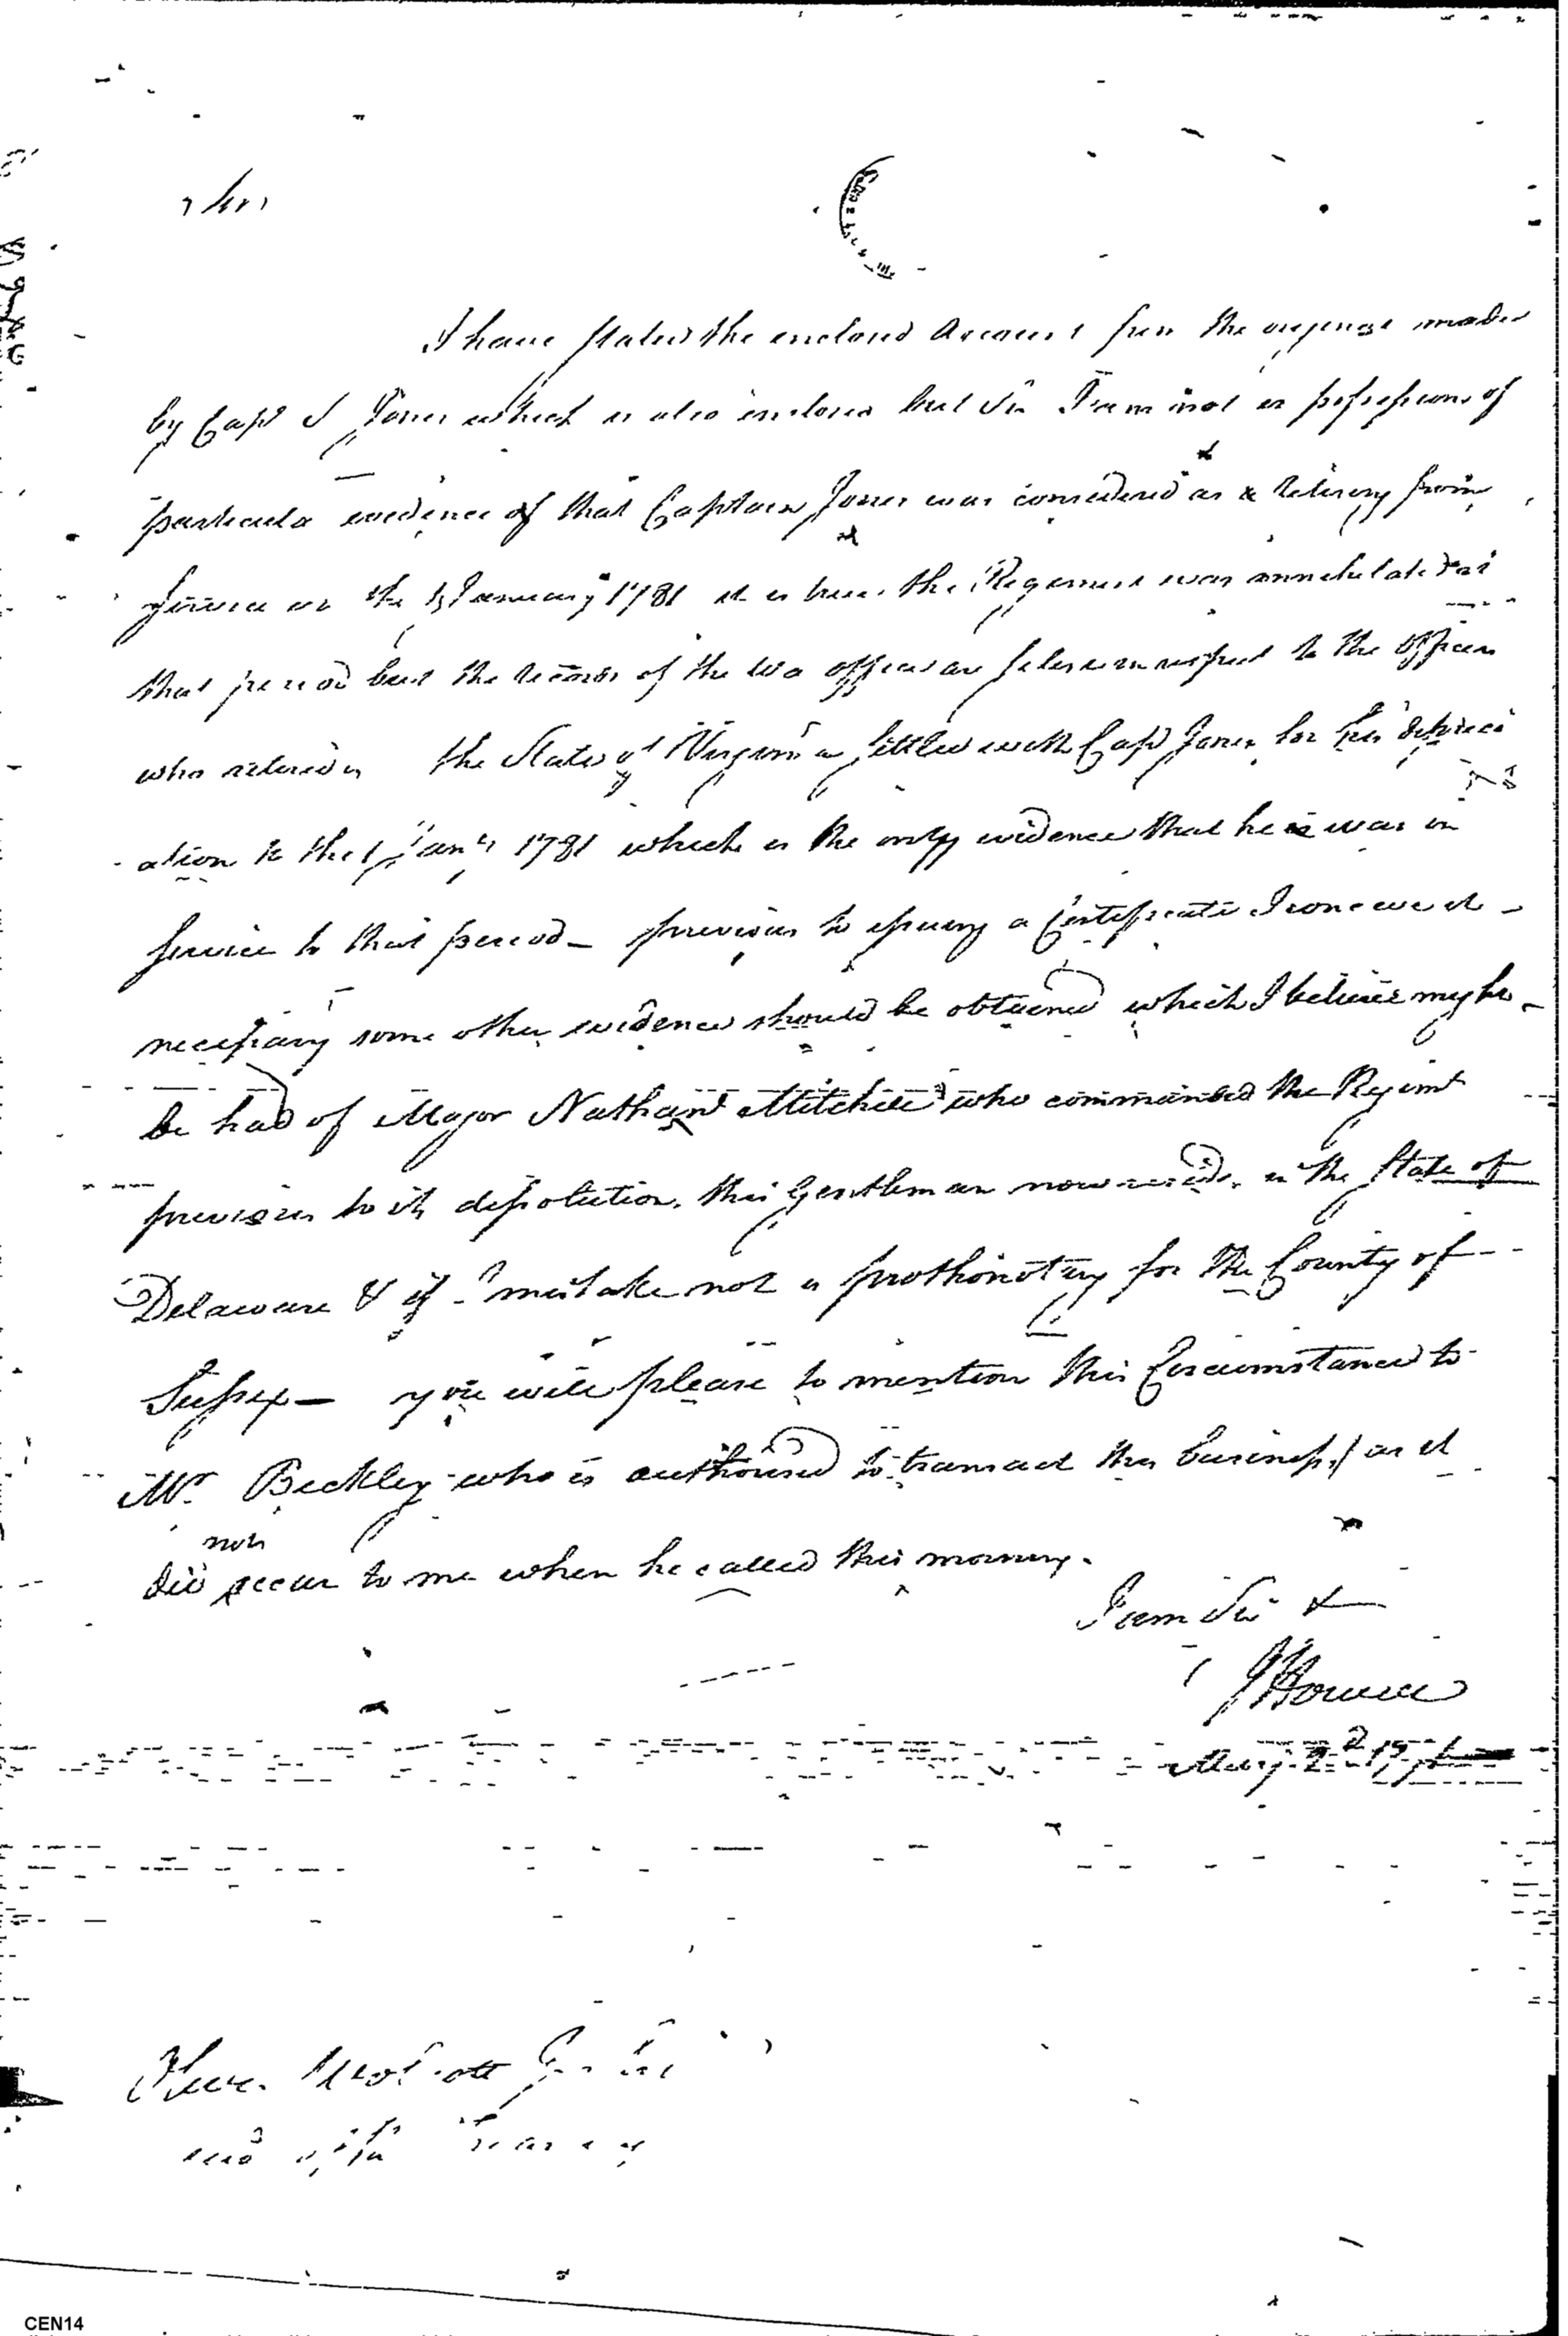 Sir
I have stated the enclosed Account from the made
by Capt J Jones which is also enclosed but Sir I am not in possessions of
particular evidence of that Captain Jones was considered as a retiring from
service on the 1 January 1781 it is true the Regiment was annihilated at
that period but the records of the War office are silent in respect to the officers
who retired the State of Virginia settled with Capt Jones for his depreci
ation to the 1 Jany 1781 which is the only evidence that he was in
service to that period – previous to issuing a Certificate I conceive it –
necessary some other evidence should be obtained which I believe may be –
be had of Major Nathan Mitchell who commanded the Regimt
previous to its dissolution, this Gentleman now resides in the State of
Delaware & if I mistake not is prothonotary for the County of
Sussex – you will please to mention this Circumstance to
Mr. Beckley who is authorised to transact this business, as it
not
did occur to me when he called this morning.
I am Sir &
J Howell
May 2d
CEN14